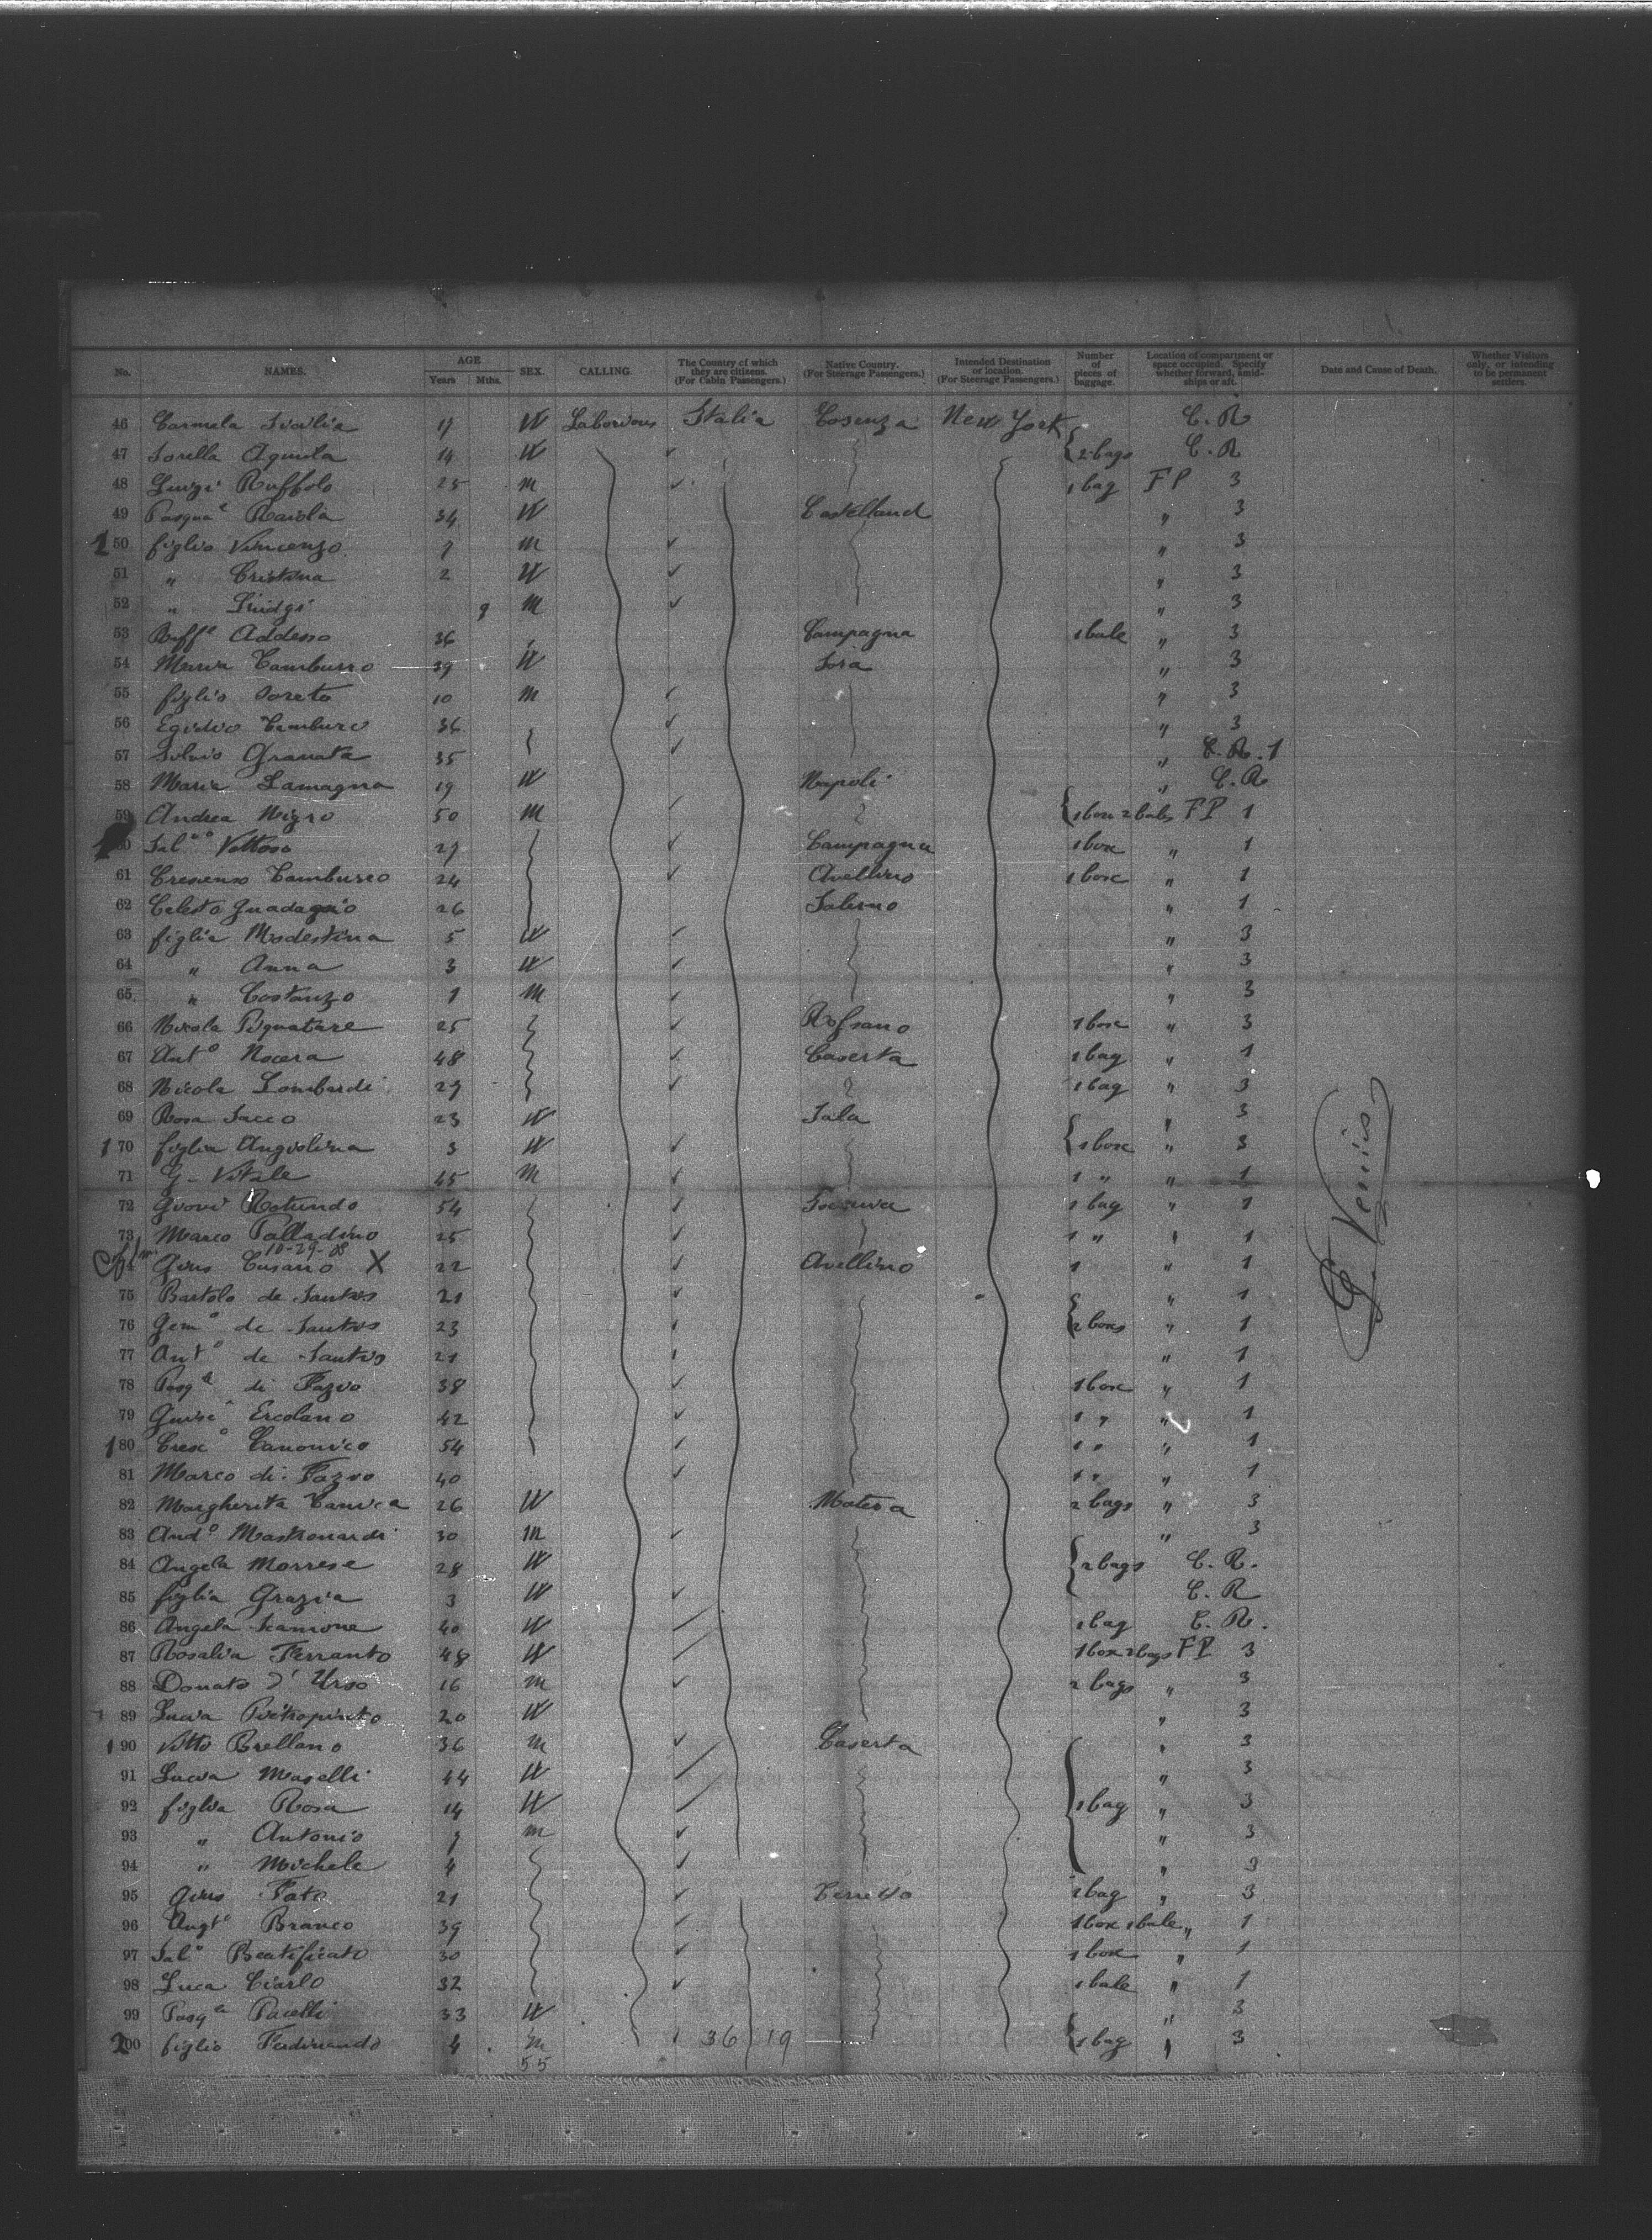 No. NAMES. AGE Years Mths. SEX. CALLING. The Country of which they are citizens. (For Cabin Passengers.) Native Country. (For Steerage Passengers.) Intended Destination or location. (For Steerage Passengers.) Number of pieces of baggage. Location of compartment or space occupied. Specify whether forward, amidships or aft. Date and Cause of Death. Whether Visitors only, or intending to be permanent settlers.
46 Carmela 17 W Italia Cosenza New York C. R
47 Sorella 14 W 2 bags C. R
48 Luigi Ruffolo 25 m 1 bag F P 3
49 Raiola 34 W " 3
50 figlio Vincenzo 7 m " 3
51 " Cristina 2 W " 3
52 " Luidgi 9 M " 3
53 36 Campagna 1 bale " 3
54 Maria Tamburro 39 W Sora " 3
55 figlio Loreto 10 m " 3
56 Egidio Tamburo 36 " 3
57 Silvio Granata 35 " C. R. 1
58 Maria Lamagna 19 W Napoli " C. R
59 Andrea Nigro 50 m F P 1
60 29 Campagna 1 box " 1
61 Tamburro 24 Avellino 1 box " 1
62 Celesto 26 Salerno " 1
63 figlia Modestina 5 W " 3
64 " Anna 3 W " 3
65 " Costanzo 1 M " 3
66 Nicola Pignatare 25 Rofrano 1 box " 3
67 Anto Nocera 48 Caserta 1 bag " 1
68 Nicola Lombardi 29 1 bag " 3
69 Rosa Sacco 23 W Sala " 3
1 70 figlia Angiolina 3 W 1 box " 3
71 G. Vitale 45 m 1 " " 1
72 Giovi Rotundo 54 1 bag " 1
73 Marco Palladino 25 1 " " 1
10-29-08
Cusano X 22 Avellino 1 " 1
75 Bartolo de Santis 21 " 1
76 Gemo de Santis 23 2 boxs " 1
77 Anto de Santis 21 " 1
78 di Fazio 38 1 box " 1
79 Ercolano 42 1 " " 1
1 80 Cresco Canonico 54 1 " " 1
81 Marco di Fazio 40 1 " " 1
82 Margherita 26 W Matera 2 bags " 3
83 Mastronardi 30 m " 3
84 Angela Morrese 28 W 2 bags C. R.
85 figlia Grazia 3 W C. R
86 Angela 40 W 1 bag C. R.
87 Rosalia Ferranto 48 W 1 box 2 bags F P 3
88 Donato d'Urso 16 m 2 bags " 3
89 Lucia 20 W " 3
1 90 Vitto Brellano 36 m Caserta " 3
91 Lucia Maselli 44 W " 3
92 figlia Rosa 14 W 1 bag " 3
93 " Antonio 7 m " 3
94 " Michele 4 " 3
95 Fato 21 1 bag " 3
96 Branco 39 1 box 1 bale " 1
97 Salo Beatificato 30 1 box " 1
98 Luca Ciarlo 32 1 bale " 1
99 Pacelli 33 W " 3
200 figlio Ferdinando 4 m 36 19 1 bag " 3
55